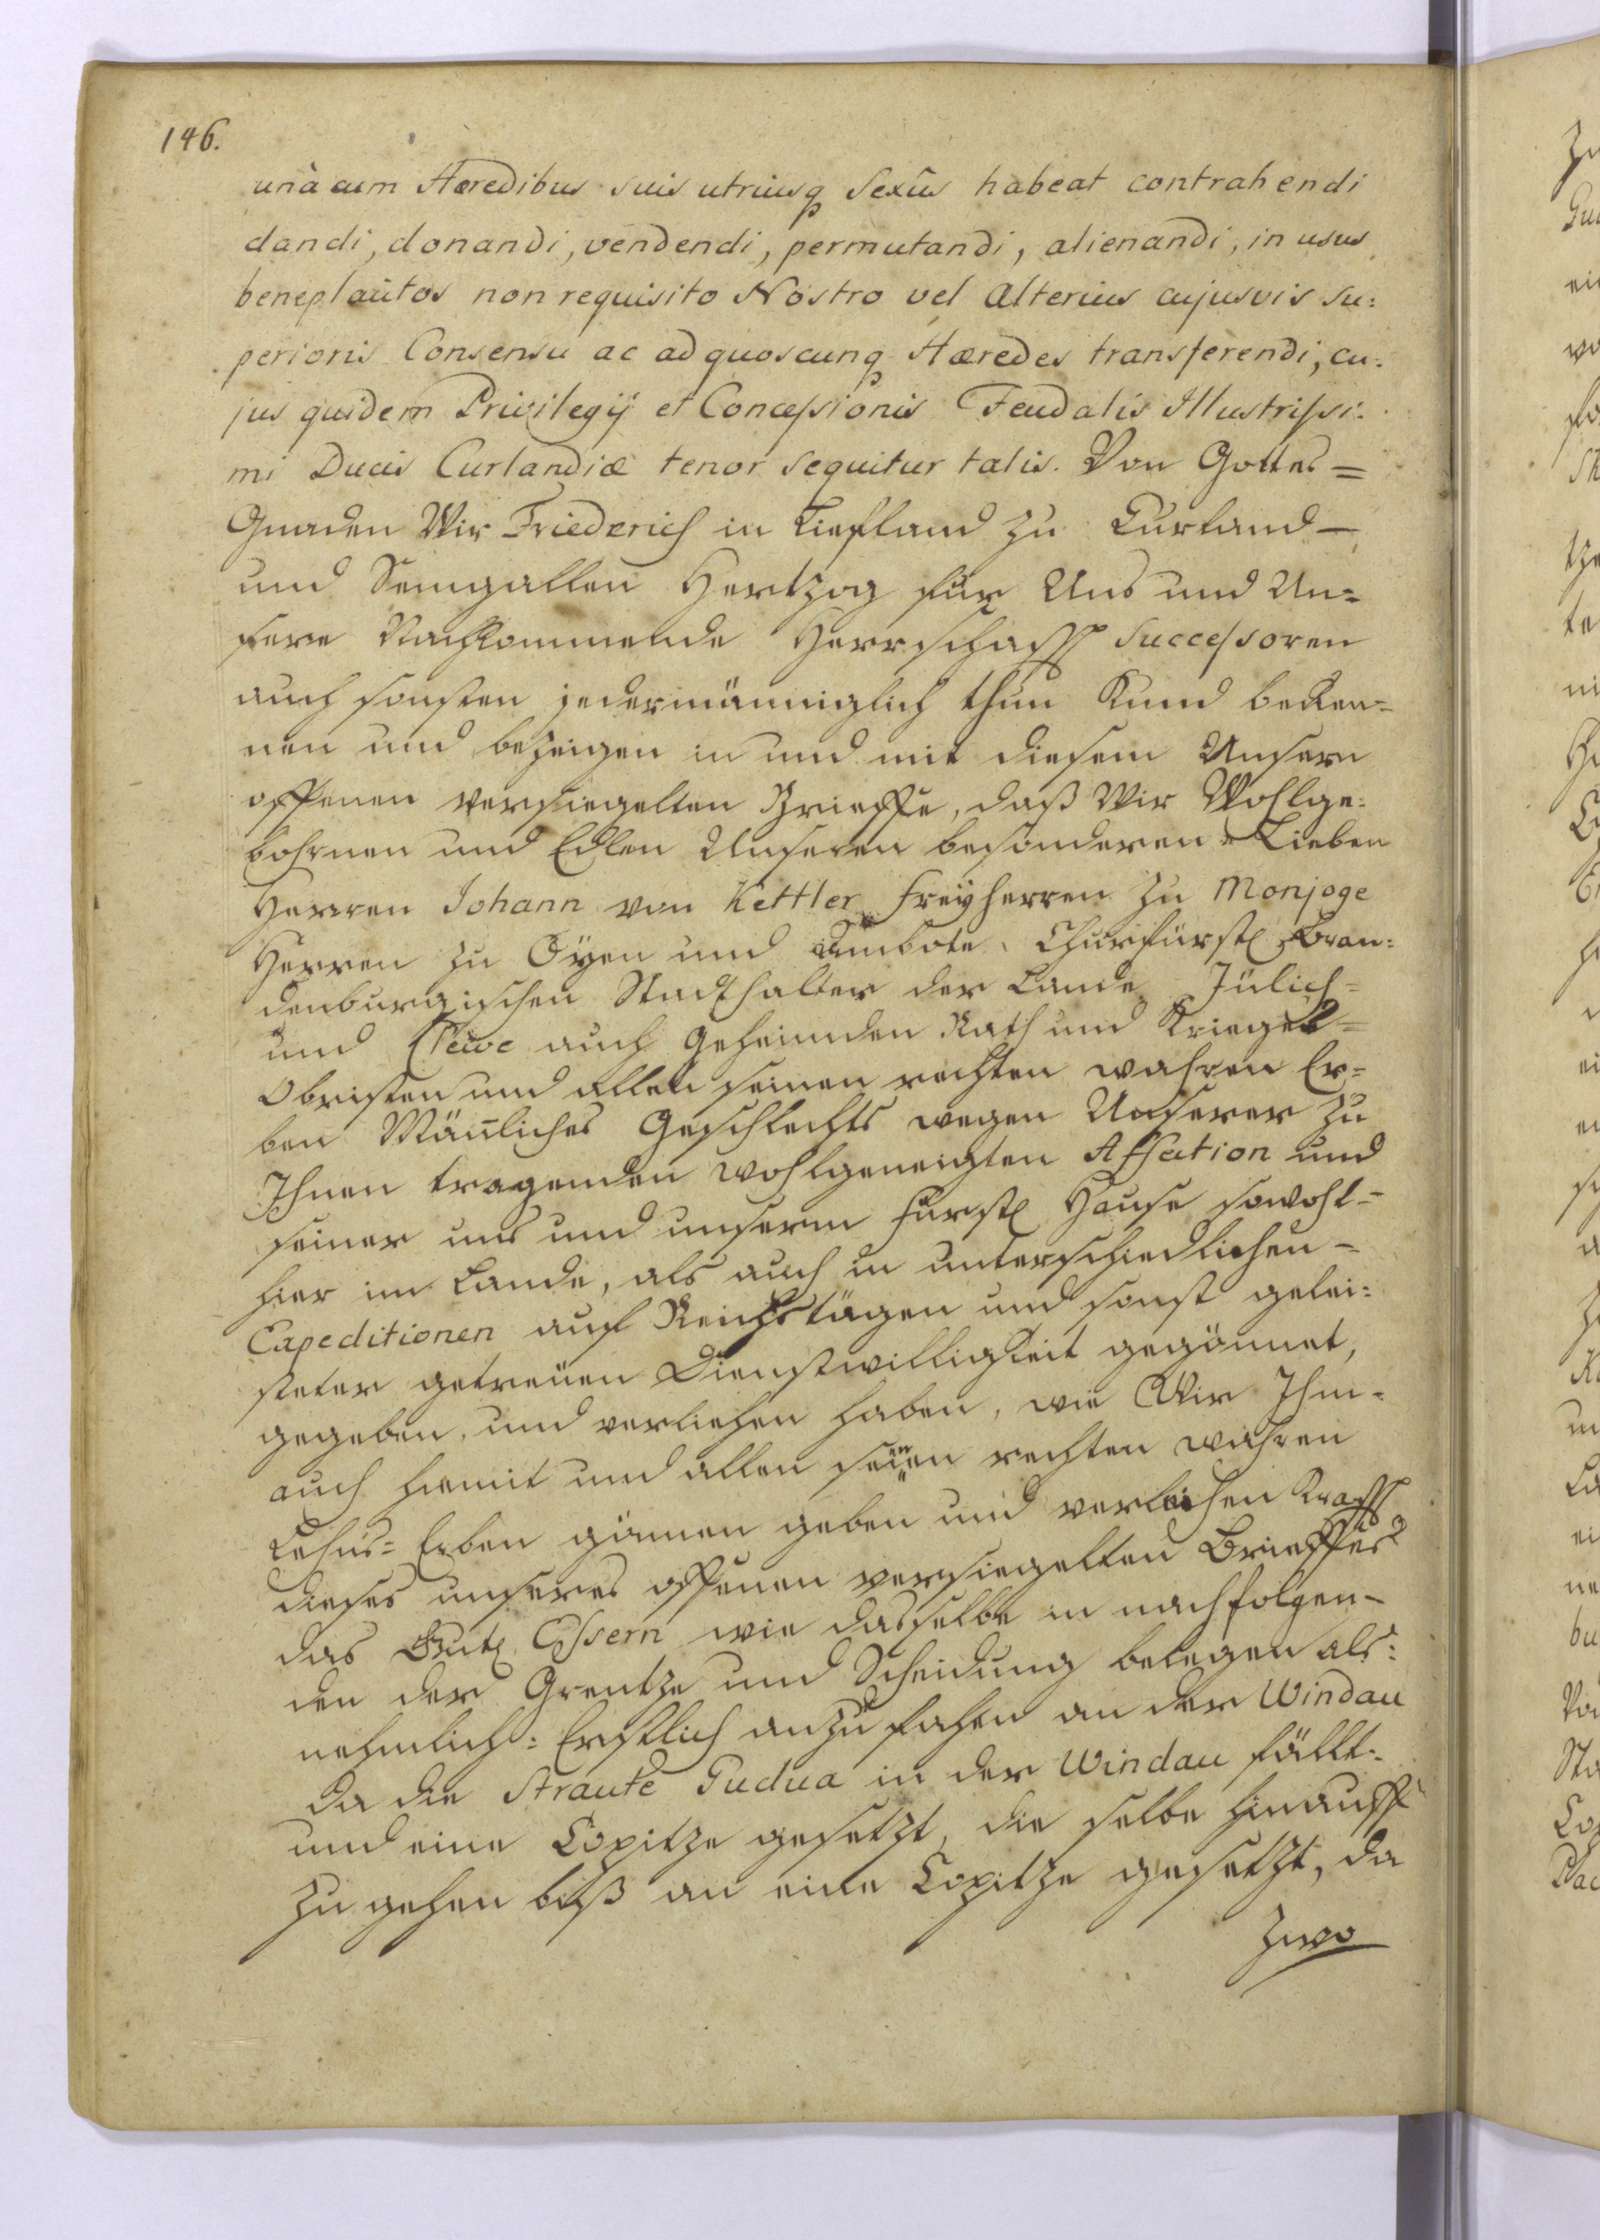 146.
unà cum Hæredibus suis utriusq Sexûs habeat contrahendi
dandi, donandi, vendendi, permutandi, alienandi, in usus
beneplacitos non requisito Nostro vel Alterius cujusvis Su=
perioris Consensu ac ad quoscunq Hæredes transferendi, cu=
jus quidem Privilegij et Conceſsionis Feudalis Illustriſsi=
mi Ducis Curlandiæ tenor sequitur talis. Von Gottes=
Gnaden Wir Friederich in Liefland zu Curland-
und Semgallen Hertzog für Uns und Un=
sere Nachkommende Herrschafft Succeſsoren
auch sonsten jedermänniglich thun Kund beken=
nen und bezeigen in und mit diesem Unsern
offenen versiegelten Brieffe, daß Wir Wohlge=
bohrnen und Edlen Unseren besonderen Lieben
Herren Johann von Kettler Freyherren zu Monjoge
Herren zu Öyen und Ambote, Churfürstl Bran=
denburgischen Stadthalter der Lande Jülich=
und Clewe auch Geheimden Rath und Krieges=
Obristen und allen seinen rechten wahren Er=
ben Mäñliches Geschlechts wegen Unserer zu
Ihnen tragenden wohlgeneigten Affection und
seiner uns und unserem Fürstl Hause sowohl=
hier im Lande, als auch in unterschiedlichen-
Expeditionen auf Reichstägen und sonst gelei=
steter getreüen Dienstwilligkeit gegönnet,
gegeben, und verliehen haben, wie Wir Ihm-
auch hiemit und allen seinen rechten wahren
Lehns= Erben gönnen geben und verleihen Krafft
dieses unseres offenen versiegelten Brieffes
das Guth Eſsern wie dasselbe in nachfolgen-
den der Grentze und Scheidung belegen als:
nehmlich: Erstlich anzufahen an der Windau
da die Straute Pudua in der Windau fällt.
und eine Copitze gesetzt, die selbe hinauff
zu gehen biß an eine Copitze gesetzt, da
zwo